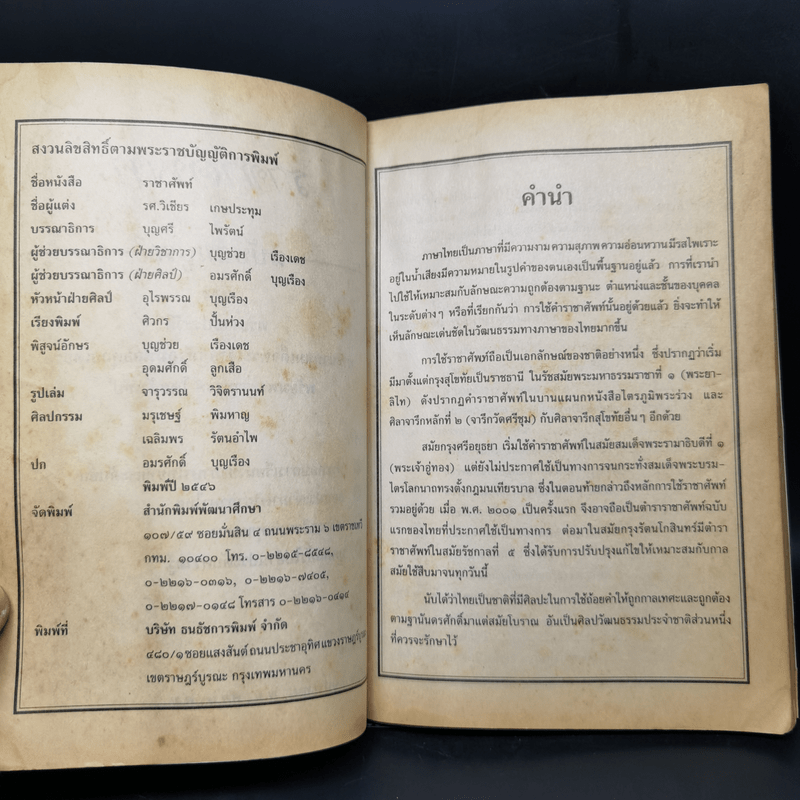 สงวนลิขสิทธิ์ตามพระราชบัญญัติการพิมพ์
ชื่อหนังสือ ราชาศัพท์
ชื่อผู้แต่ง รศ.วิเชียร เกษประทุม
บรรณาธิการ บุญศรี ไพรัตน์
ผู้ช่วยบรรณาธิการ (ฝ่ายวิชาการ) บุญช่วย เรืองเดช
ผู้ช่วยบรรณาธิการ (ฝ่ายศิลป์) อมรศักดิ์ บุญเรือง
หัวหน้าฝ่ายศิลป์ อุไรพรรณ บุญเรือง
เรียงพิมพ์ ศิวกร ปั้นห่วง
พิสูจน์อักษร บุญช่วย เรืองเดช
อุดมศักดิ์ ลูกเสือ
รูปเล่ม จารุวรรณ วิจิตรานนท์
ศิลปกรรม มรุเชษฐ์ พิมหาญ
เฉลิมพร รัตนอำไพ
ปก อมรศักดิ์ บุญเรือง
พิมพ์ปี ๒๕๔๖
จัดพิมพ์ สำนักพิมพ์พัฒนาศึกษา
๑๐๗/๕๙ ซอยมั่นสิน ๔ ถนนพระราม ๖ เขตราชเทวี
กทม. ๑๐๔๐๐ โทร. ๐-๒๒๑๕-๘๕๔๘,
๐-๒๒๑๖-๐๓๑๖, ๐-๒๒๑๖-๗๔๐๕,
๐-๒๒๑๗-๐๑๔๘ โทรสาร ๐-๒๒๑๖-๐๔๑๔
พิมพ์ที่ บริษัท ธนธัชการพิมพ์ จำกัด
๔๘๐/๑ ซอยแสงสันต์ ถนนประชาอุทิศ แขวงราษฎร์บูรณะ
เขตราษฎร์บูรณะ กรุงเทพมหานคร
คำนำ
ภาษาไทยเป็นภาษาที่มีความงาม ความสุภาพ ความอ่อนหวาน มีรสไพเราะ
อยู่ในน้ำเสียงมีความหมายในรูปคำของตนเองเป็นพื้นฐานอยู่แล้ว การที่เรานำ
ไปใช้ให้เหมาะสมกับลักษณะความถูกต้องตามฐานะ ตำแหน่งและชั้นของบุคคล
ในระดับต่างๆ หรือที่เรียกกันว่า การใช้คำราชาศัพท์นั้นอยู่ด้วยแล้ว ยิ่งจะทำให้
เห็นลักษณะเด่นชัดในวัฒนธรรมทางภาษาของไทยมากขึ้น
การใช้ราชาศัพท์ถือเป็นเอกลักษณ์ของชาติอย่างหนึ่ง ซึ่งปรากฏว่าเริ่ม
มีมาตั้งแต่กรุงสุโขทัยเป็นราชธานี ในรัชสมัยพระมหาธรรมราชาที่ ๑ (พระยา-
ลิไท) ดังปรากฏคำราชาศัพท์ในบานแผนกหนังสือไตรภูมิพระร่วง และ
ศิลาจารึกหลักที่ ๒ (จารึกวัดศรีชุม) กับศิลาจารึกสุโขทัยอื่นๆ อีกด้วย
สมัยกรุงศรีอยุธยา เริ่มใช้คำราชาศัพท์ในสมัยสมเด็จพระรามาธิบดีที่ ๑
(พระเจ้าอู่ทอง) แต่ยังไม่ประกาศใช้เป็นทางการจนกระทั่งสมเด็จพระบรม-
ไตรโลกนาถทรงตั้งกฎมนเทียรบาล ซึ่งในตอนท้ายกล่าวถึงหลักการใช้ราชาศัพท์
รวมอยู่ด้วย เมื่อ พ.ศ. ๒๐๐๑ เป็นครั้งแรก จึงอาจถือเป็นตำราราชาศัพท์ฉบับ
แรกของไทยที่ประกาศใช้เป็นทางการ ต่อมาในสมัยกรุงรัตนโกสินทร์มีตำรา
ราชาศัพท์ในสมัยรัชกาลที่ ๕ ซึ่งได้รับการปรับปรุงแก้ไขให้เหมาะสมกับกาล
สมัยใช้สืบมาจนทุกวันนี้
นับได้ว่าไทยเป็นชาติที่มีศิลปะในการใช้ถ้อยคำให้ถูกกาลเทศะและถูกต้อง
ตามฐานันดรศักดิ์มาแต่สมัยโบราณ อันเป็นศิลปวัฒนธรรมประจำชาติส่วนหนึ่ง
ที่ควรจะรักษาไว้